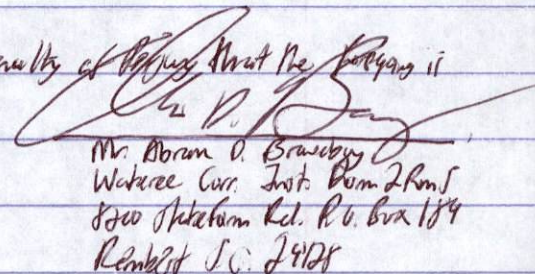 enalty of Perjury that the foregoing is
Mr. Abram D.
Wateree Corr. Inst. Dorm 2 Rm 5
8200 Statefarm Rd. P.O. Box 189
Rembert S.C. 29128